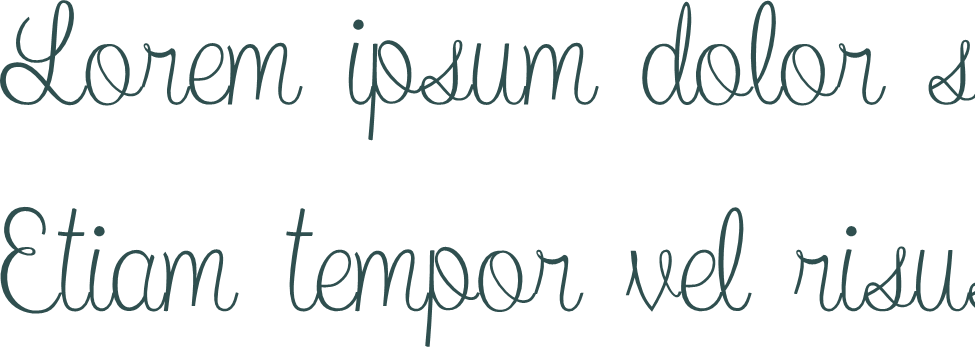 Lorem ipsum dolor s
Etiam tempor vel risus